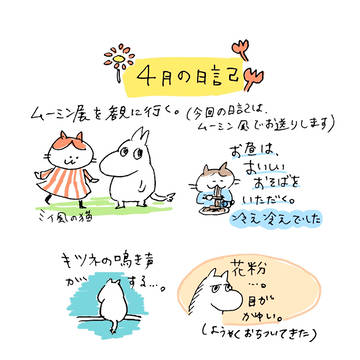 4月の日記
ムーミン展を観に行く。
(今回の日記は、
ムーミン風でお送りします)
お昼は、
おいしい
おそばを
いただく。
冷え冷えでした
ミイ風の猫
キツネの鳴き声
がする…。
花粉
…。
目が
かゆい。
(ようやくおちついてきた)